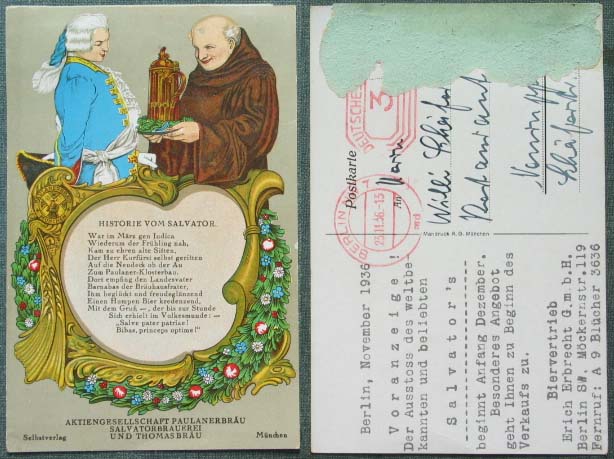 HISTORIE VOM SALVATOR.
War im März gen Indica
Wiederum der Frühling nah,
Kam zu ehren alte Sitten,
Der Herr Kurfürst selbst geritten
Auf die Neudeck ob der Au
Zum Paulaner-Klosterbau.
Dort empfing den Landesvater
Barnabas der Bräuhausfrater,
Ihm beglückt und freudeglänzend
Einen Humpen Bier kredenzend,
Mit dem Gruß –, der bis zur Stunde
Sich erhielt im Volksmunde: –
„Salve pater patriae!
Bibas, princeps optime!“
AKTIENGESELLSCHAFT PAULANERBRÄU
SALVATORBRAUEREI
UND THOMASBRÄU
Selbstverlag
München
Postkarte
DEUTSCHES
3
BERLIN
23.11.36.-13
An
Herrn
Willi Schäfer
Restaurant
Manzdruck A. G. München
Berlin, November 1936
Voranzeige!
Der Ausstoss des weltbe
kannten und beliebten
Salvator's
beginnt Anfang Dezember.
Besonderes Angebot
geht Ihnen zu Beginn des
Verkaufs zu.
Biervertrieb
Erich Erbrecht G.m.b.H.
Berlin SW. Möckernstr.119
Fernruf: A 9 Blücher 3636